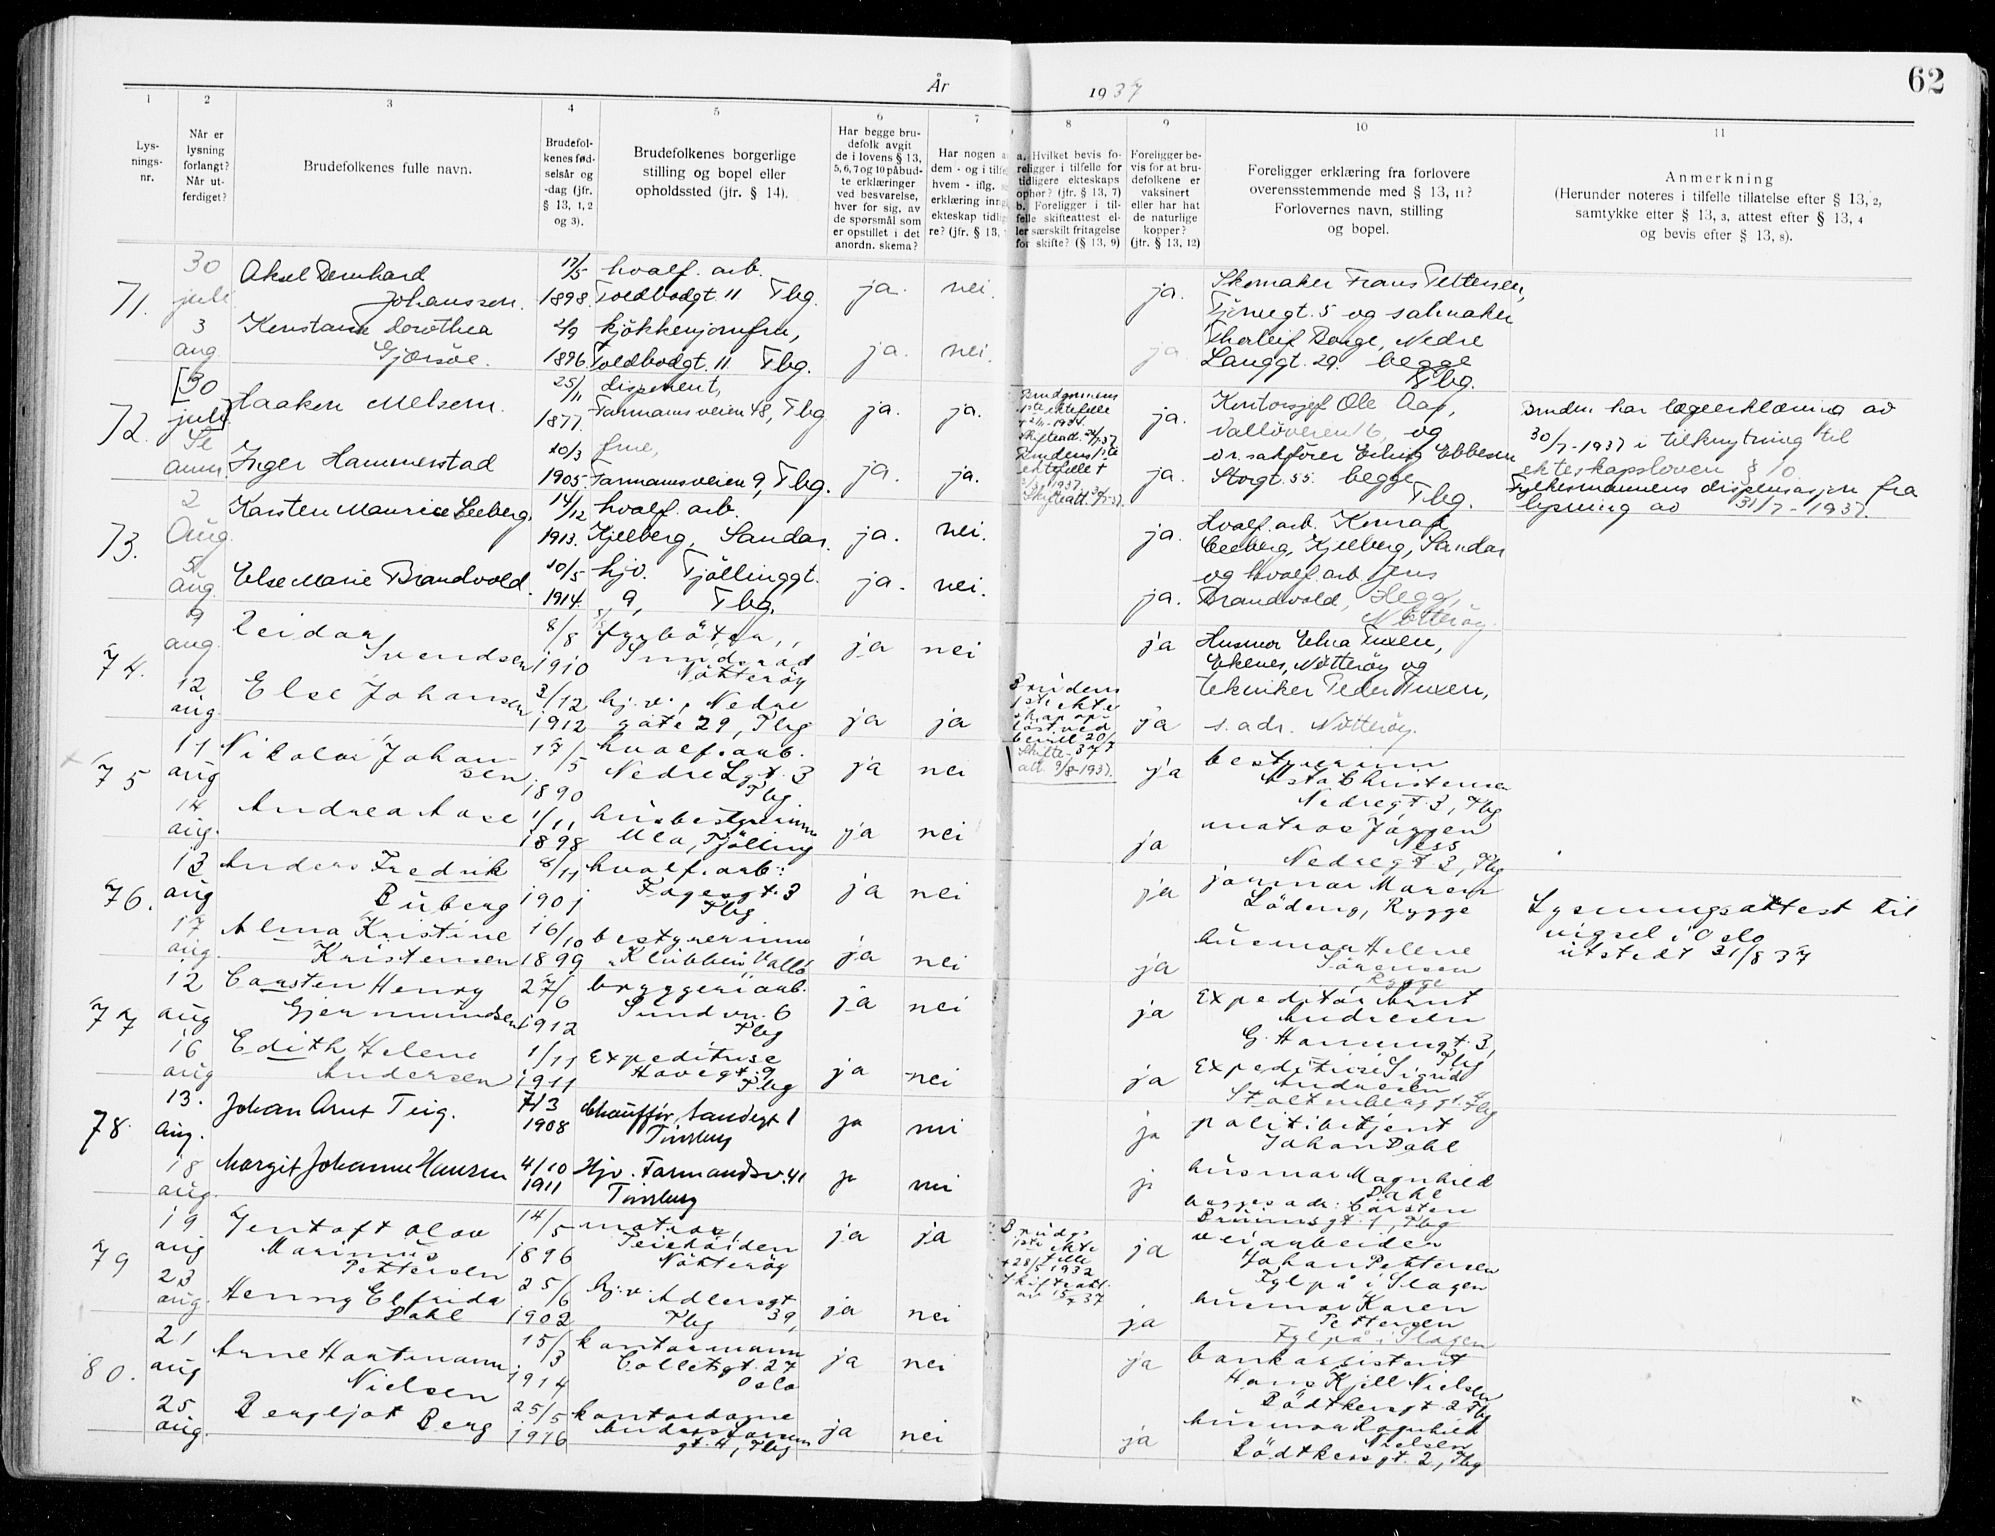 År 1937
62
1 2 3 4 5 6 7 8 9 10 11
Lys-
nings-
nr.
Når er
lysning
forlangt?
Når ut-
ferdiget?
Brudefolkenes fulle navn.
Brudefol-
kenes fød-
selsår og
-dag (jfr.
§ 13, 1, 2
og 3).
Brudefolkenes borgerlige
stilling og bopel eller
opholdssted (jfr. § 14).
Har begge bru-
defolk avgit
de i lovens § 13,
5, 6, 7 og 10 påbud-
te erklæringer
ved besvarelse,
hver for sig, av
de spørsmål som
er opstillet i det
anordn. skema?
Har nogen
dem - og i tilfe
hvem - iflg.
erklæring inng
ekteskap tidlig
re? (jfr. § 13,
a. Hvilket bevis fo-
religger i tilfelle for
tidligere ekteskaps
ophør? (jfr. § 13, 7)
b. Foreligger i til-
felle skifteattest el-
ler særskilt fritagelse
for skifte? (§ 13, 9)
Foreligger be-
vis for at bru-
defolkene er
vaksinert
eller har hat
de naturlige
kopper?
(jfr. § 13, 12)
Foreligger erklæring fra forlovere
overensstemmende med § 13, 11?
Forlovernes navn, stilling
og bopel.
Anmerkning
(Herunder noteres i tilfelle tillatelse efter § 13, 2,
samtykke efter § 13, 3, attest efter § 13, 4
og bevis efter § 13, 8).
71.
30
juli
Aksel Bernhard
Johanssen.
17/5
1898.
hvalf. arb.
Toldbodgt. 11 Tbg.
ja. nei. ja.
Skomaker Frans Pettersen,
Tjömegt. 5 og salmaker
3
aug
Konstanse Dorothea
Gjærsöe.
2/9
1896
kjökkenjomfru,
Toldbodgt. 11. Tbg.
ja. nei. ja
Thorleif Borge, Nedre
Langgt. 29. begge
Tbg.
72.
[30
juli]
Haaken Melsom.
25/11
1877.
disponent,
Farmannsveien 48, Tbg
ja. ja.
Brudgommens
1ste ektefelle
ja.
Kontorsjef Ole Aas,
Vallöveien 6, og
Se
anm.
Inger Hammerstad
20/3
1905.
frue,
Farmannsveien 9, Tbg.
ja. ja.
Brudens 1ste
ektefelle †
ja.
o.r. sakförer Erling Ebbesen
Storgt. 55. begge
Tbg.
Bruden har lægeerklæring av
30/7-1937 i tilknytning til
ekteskapsloven § 10
Fylkesmannens dispensasjon fra
lysning av 31/7-1937.
73.
2
Aug.
Karsten Maurice Leeberg.
14/12
1913.
hvalf. arb.
Kjelberg, Sandar.
ja. nei. ja.
Hvalf. arb. Konrad
Leeberg, Kjelberg, Sandar
5
aug
Else Marie Brandvold.
10/5
1914.
hjv. Tjöllinggt.
9, Tbg.
ja. nei. ja.
og hvalf. arb. Jens
Brandvold, Hegg,
Nötteröy.
74.
9
aug.
Reidar
Svendsen
8/8
1910
fyrböter,
Smidsrød
Nötteröy
ja nei ja
Husmor Elna Tuxen,
Ekenes, Nötteröy og
12
aug.
Else Johansen
3/12
1912
hj.v., Nedre
gate 29, Tbg
ja ja
Brudens
1ste ekte
skap op-
löst ved
bevill 20/7
37
Skifte-
att. 9/8-1937.
ja
tekniker Peder Tuxen,
s. adr. Nötteröy.
x 75
11
aug
Nikolai Johan
sen,
17/5
1890
hvalf. arb.
Nedre Lgt. 3
Tbg
ja nei ja
bestyrerinne
Asta Christensen
Nedregt. 3, Tbg
14
aug.
Andrea Aase
1/11
1898
husbestyrerinne
Ula, Tjölling
ja nei ja
matros Jörgen
Ness
Nedregt. 3, Tbg
76.
13
aug
Anders Fredrik
Buberg
8/11
1901
hvalf. arb.
Fagesgt. 3
Tbg
ja nei ja
jormor Maren
Lödeng, Rygge
17
aug.
Alma Kristine
Kristensen
16/10
1899
bestyrerinne
"Klubben", Vallö
ja nei ja
husmor Helene
Sörensen
Rygge
Lysningsattest til
vigsel i Oslo
utstedt 21/8 37
77
12
aug
Carsten Henry
Gjermundsen
27/6
1912
bryggeriarb.
Sundvn. 6
Tbg
ja nei ja
expeditör Arnt
Andresen
G. Hansensgt. 3,
Tbg
16
aug
Edith Helene
Andersen
1/11
1911
expeditrise
Havegt. 9
Tbg
ja nei ja
expeditrise Sigrid
Andresen
Stoltenberggt. Tbg
78.
13.
Aug.
Johan Arnt Teig.
7/3
1908
Chauffør, Sandegt 1
Tönsberg
ja nei ja
politibetjent
Johan Dahl
18
aug.
Margit Johanne Hansen
4/10
1911
Hjv. Farmandsv. 41
Tönsberg
ja nei ja
husmor Magnhild
Dahl
begges adr: Carsten
Bruunsgt. 1, Tbg
79
19
aug
Gentoft Olav
Marinus
Pettersen
14/5
1896
matros,
Teiehöiden
Nötteröy
ja ja
Brudgs
1ste ekte
felle
† 28/5 1932
Skifteatt.
av 15/7 37
ja
veiarbeider
Johan Pettersen
Fylpå i Slagen
23
aug.
Henny Elfrida
Dahl
25/6
1902
hj.v. Adlersgt
39,
Tbg
ja nei ja
husmor Karen
Pettersen
Fylpå i Slagen
80.
21
aug
Arne Hartmann
Nielsen
15/3
1914
kontormann
Colletsgt. 27
Oslo
ja nei ja
bankassistent
Hans Kjell Nielsen
Bödtkersgt 2 Tbg
25
aug.
Bergljot Berg
25/5
1916
kontordame
Anders
gt. 4, Tbg
ja nei ja
husmor Ragnhild
Nielsen
Bödtkersgt. 2, Tbg